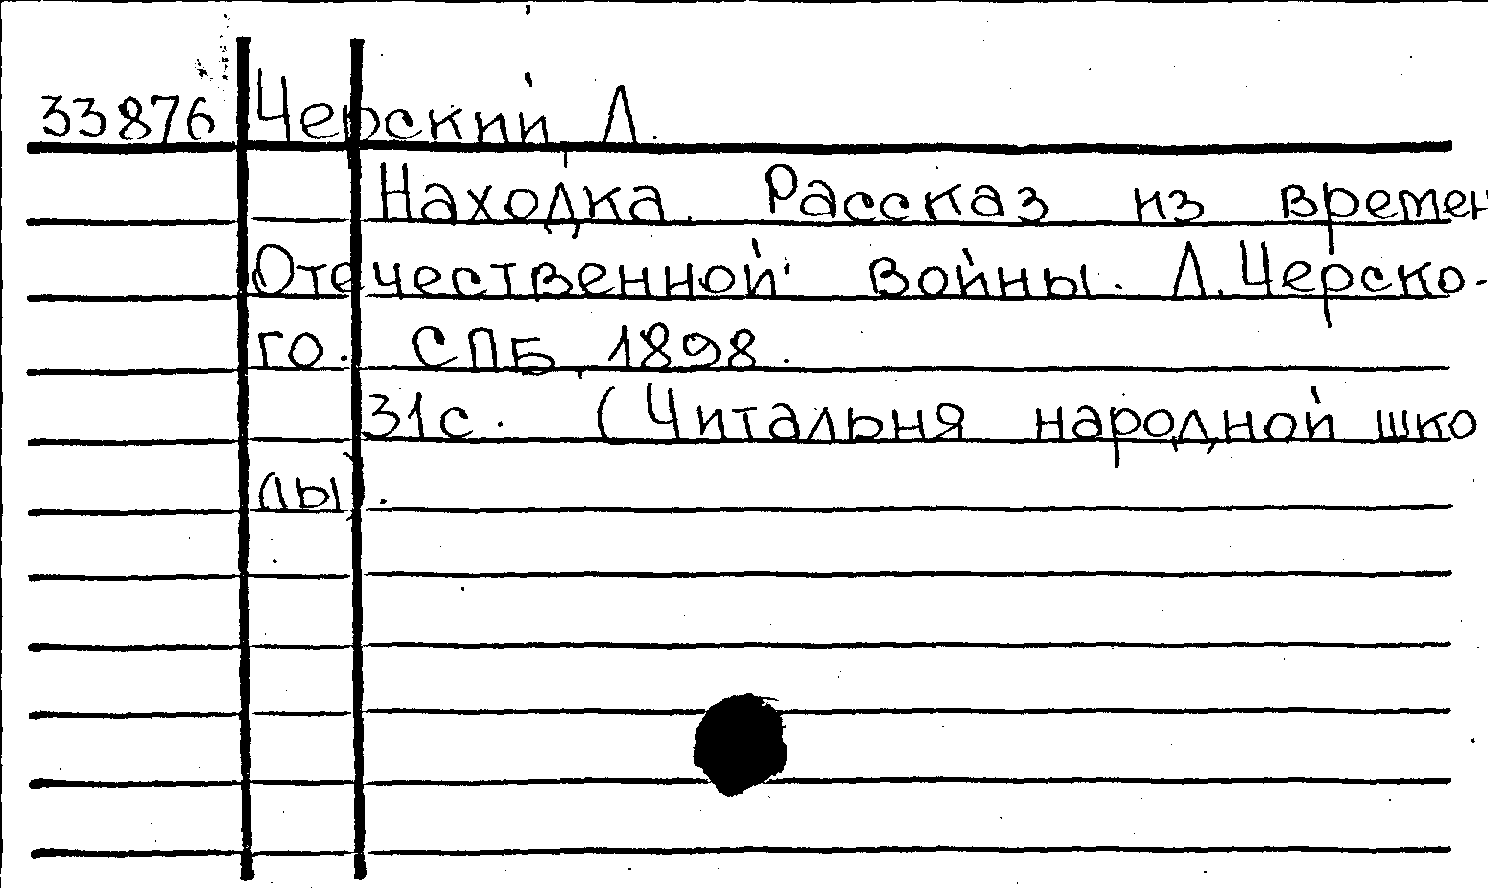 33876 Черский Л.
Находка. Рассказ из времен
Отечественной войны. Л. Черско-
го. СПБ, 1898.
31с. (Читальня народной шко
лы).